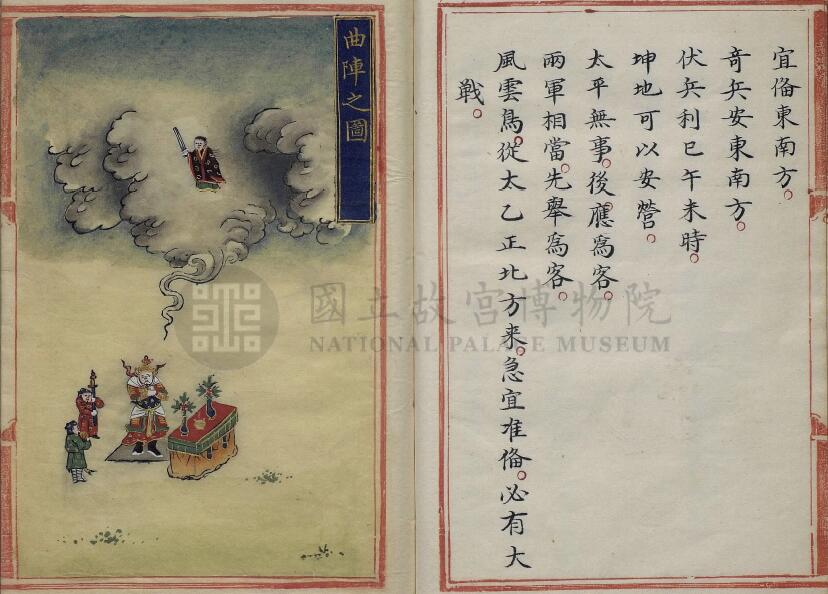 宜俻東南方。
竒兵安東南方。
伏兵利巳午未時。
坤地可以安營。
太平無事。後應爲客。
兩軍相當。先舉爲客。
風雲鳥。從太乙正北方来。急宜准俻。必有大
戰。
曲陣之圖
國立故宮博物院
NATIONAL PALACE MUSEUM